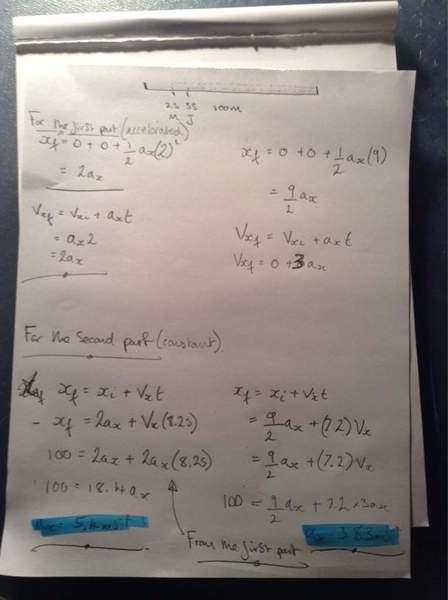 2s 3s 100m
M J
For the first part (accelerated)
xf = 0 + 0 + 1/2 ax(2)²
= 2ax
Vxf = Vxi + axt
= ax2
= 2ax
xf = 0 + 0 + 1/2 ax(9)
= 9/2 ax
Vxf = Vxi + axt
Vxf = 0 + 3ax
For the second part (constant).
xf = xi + Vxt
- xf = 2ax + Vx(8.2s)
100 = 2ax + 2ax(8.2s)
100 = 18.4ax
ax = 5.4ms-2
xf = xi + Vxt
= 9/2 ax + (7.2)Vx
= 9/2 ax + (7.2)Vx
100 = 9/2 ax + 7.2 × 3ax
ax = 3.83
From the first part